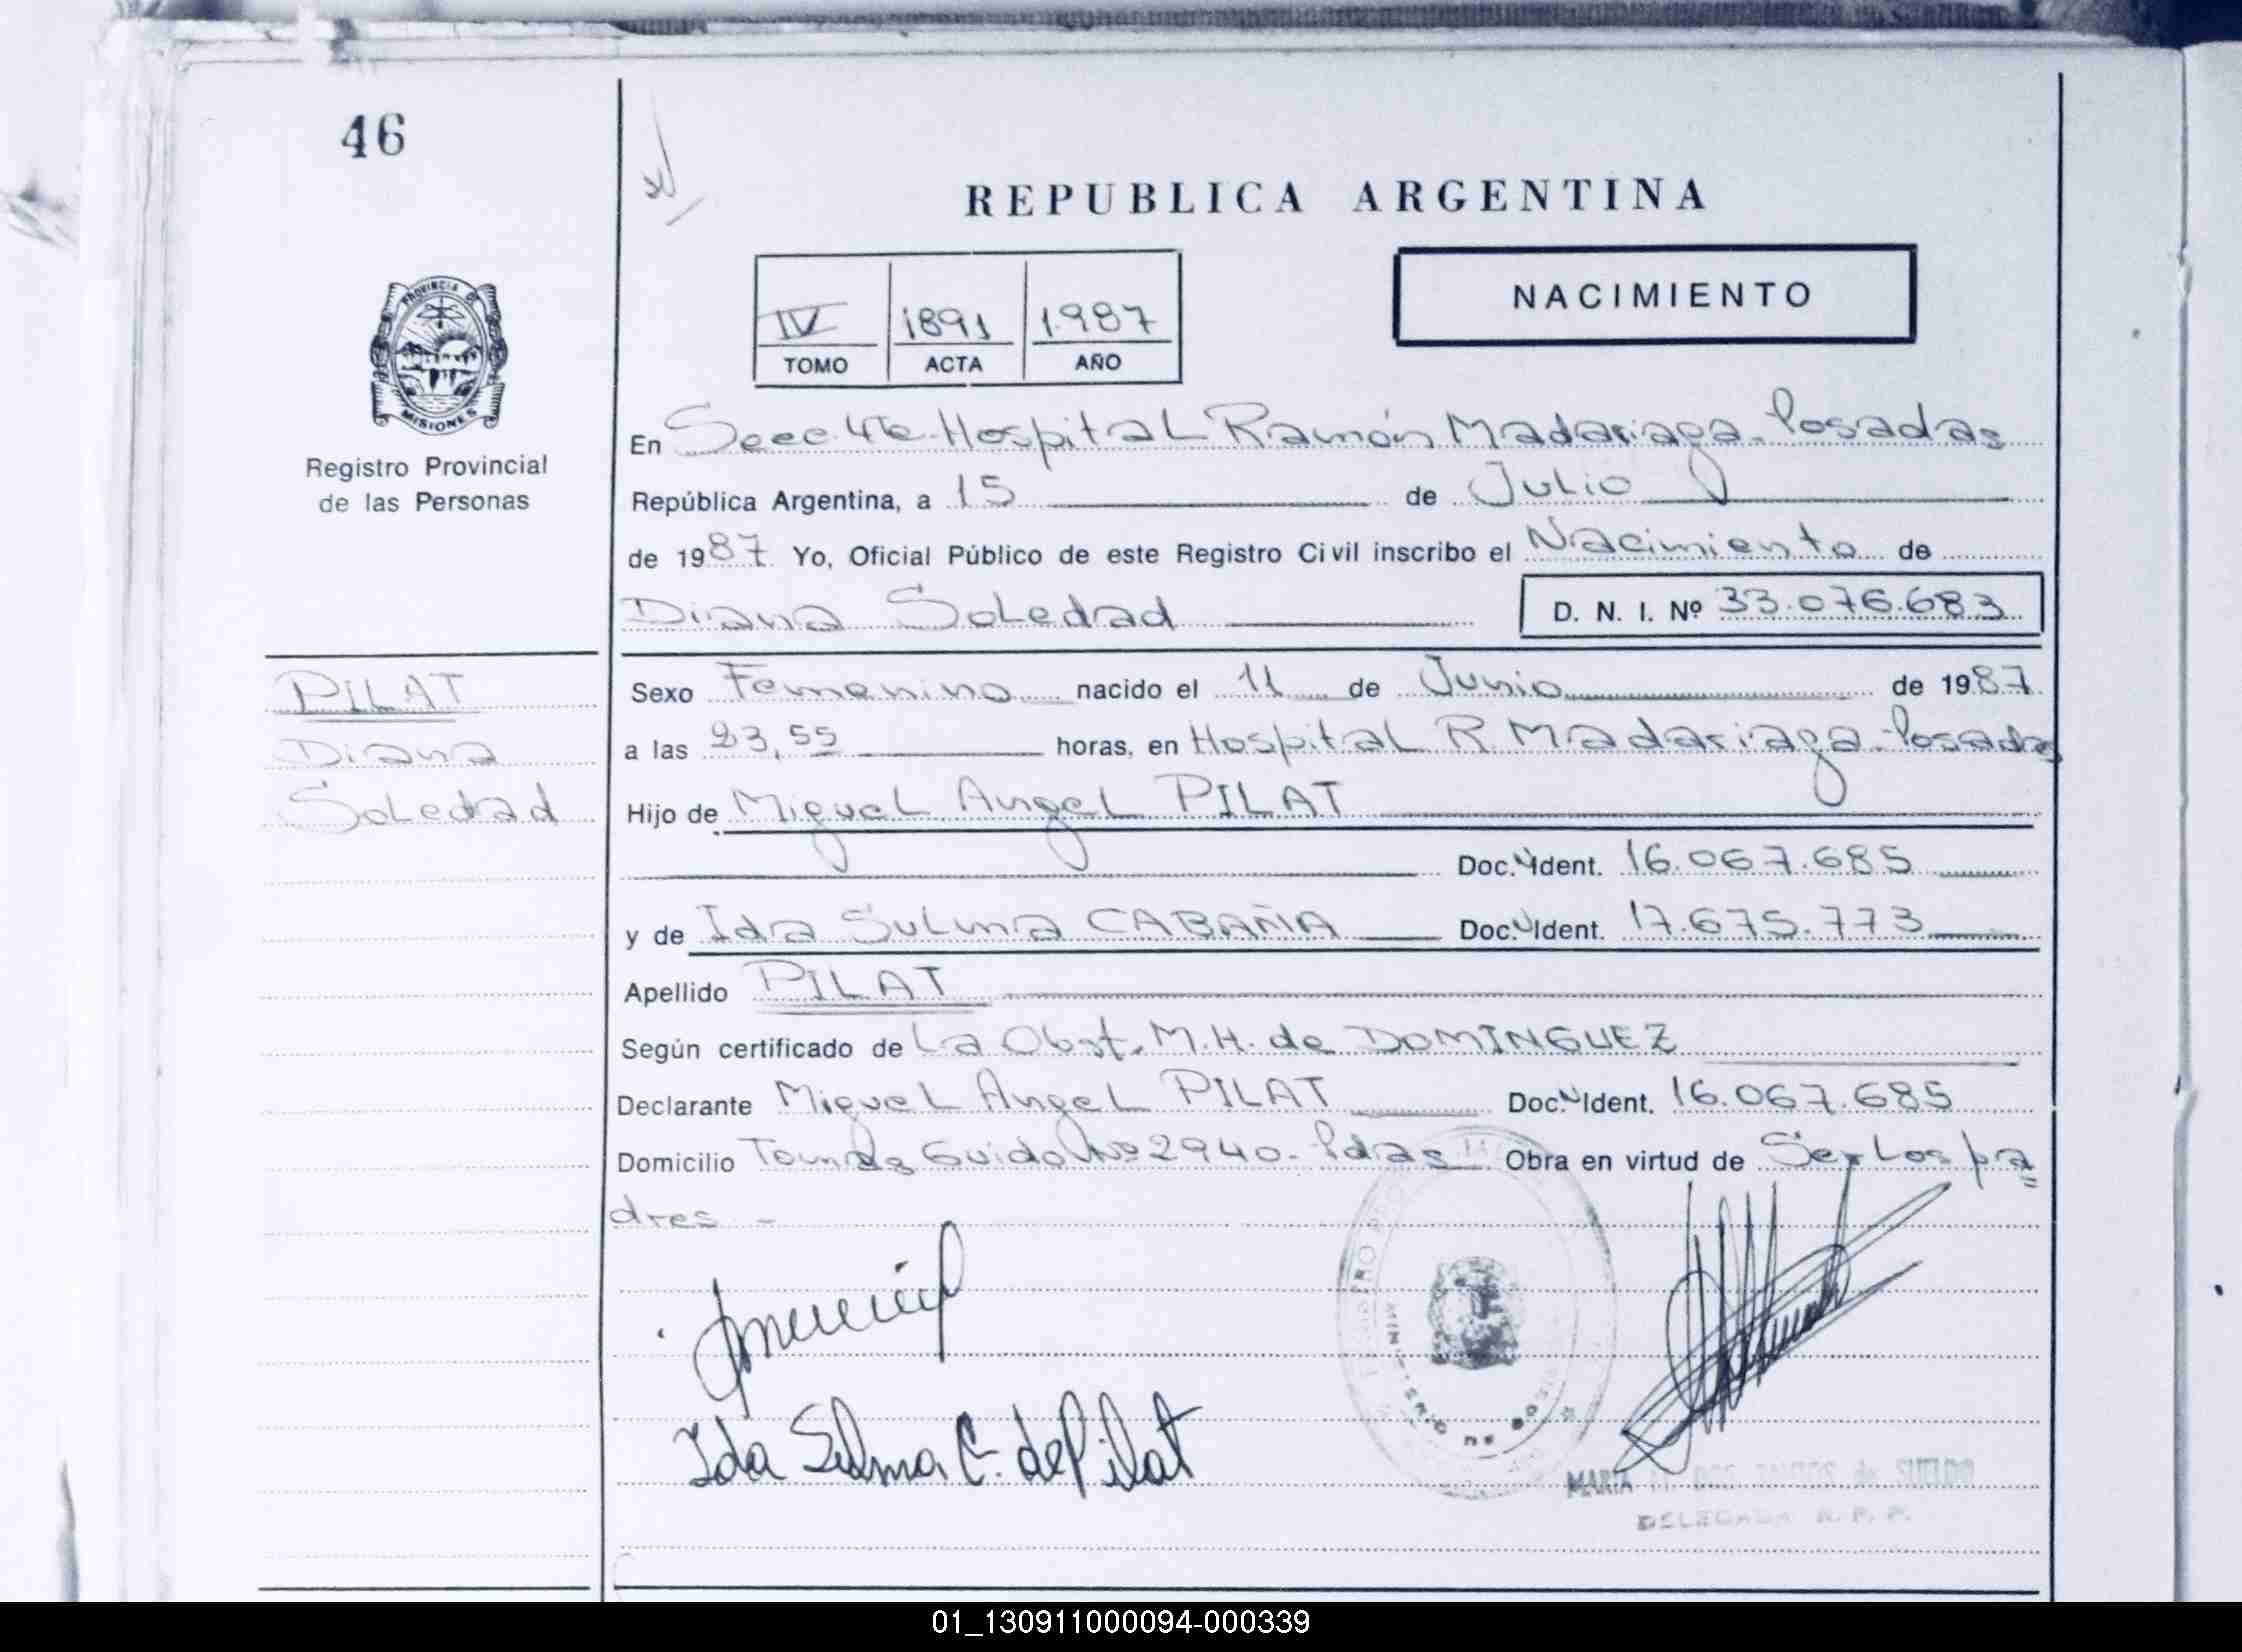 46
REPUBLICA ARGENTINA
IV 1891 1987
TOMO ACTA AÑO
NACIMIENTO
PROVINCIA DE
MISIONES
Registro Provincial
de las Personas
En Secc. 4ta. Hospital Ramón Madariaga-Posadas
República Argentina, a 15 de Julio
de 1987 Yo, Oficial Público de este Registro Civil inscribo el Nacimiento de
Diana Soledad D. N. I. Nº 33.076.683
PILAT
Diana
Soledad
Sexo Femenino nacido el 11 de Junio de 1987
a las 23,55 horas, en Hospital R. Madariaga-Posadas
Hijo de Miguel Angel PILAT
Doc. Ident. 16.067.685
y de Ida Sulma CABAÑA Doc. Ident. 17.675.773
Apellido PILAT
Según certificado de La Obst. M.H. de DOMINGUEZ
Declarante Miguel Angel PILAT Doc. Ident. 16.067.685
Domicilio Tomás Guido Nº 2940-Pdas Obra en virtud de Ser los pa
dres -
Ida Sulma C. de Pilat
MINISTERIO DE
MARIA DOS SANTOS de SUELDO
DELEGADA R. P. P.
01_130911000094-000339